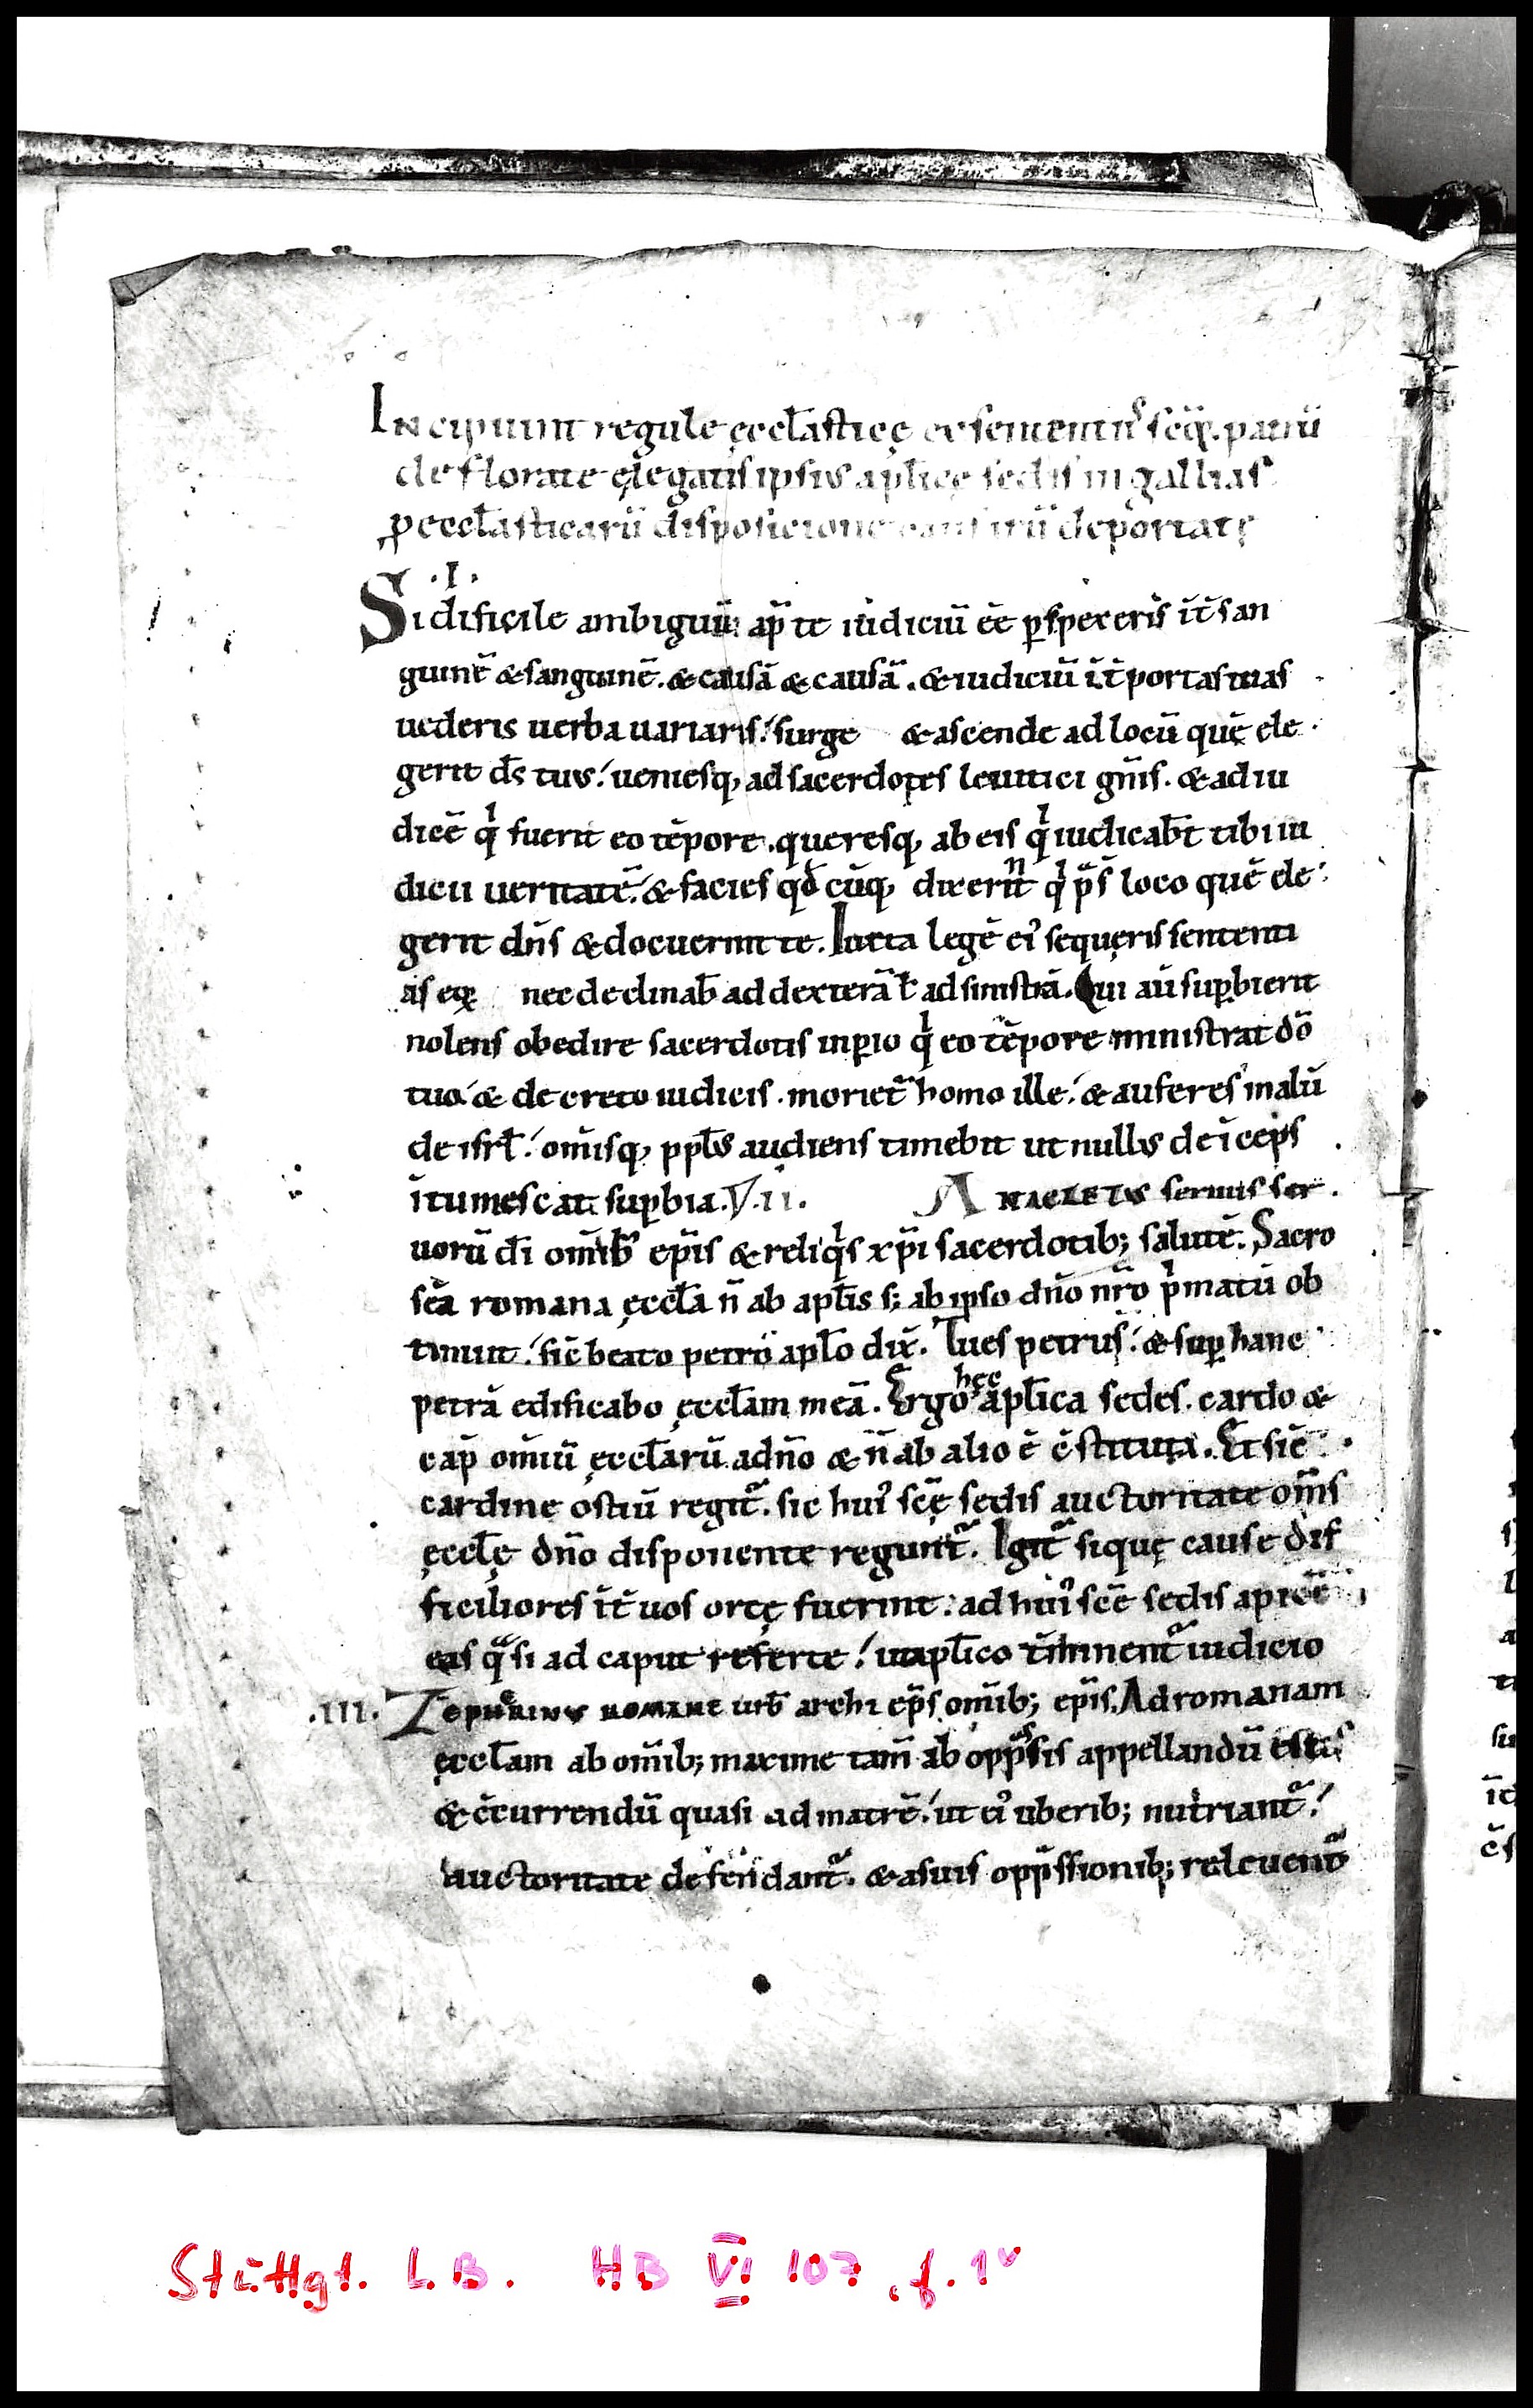 Incipiunt regule ęccl̄asticę et sententiᷤ sc̄o̧ꝝ. patrū
deflorate ęlegatis ipsius apl̄icę sedis in gallias
ꝓ eccl̄asticarū disposicione deportatę
.I.
Si dificile ambiguū ap̄ te iudiciū eē p̱spexeris īt̄ san
guinē & sanguinē. & causā & causā. & iudiciū īt̄ portas tuas
uederis uerba uariari: surge & ascende ad locū quē ele
gerit ds̄ tuus: ueniesq; ad sacerdotes leuitici gn̄is. & ad iu
dicē qⁱ fuerit eo tēpore. queresq; ab eis qⁱ iudicab̄t tibi iu
dicii ueritatē: & facies qd̄ cūq; dixerinᵗ qⁱ p̄s̄ loco quē ele
gerit dn̄s & docuerint te. Iuxta legē ei᾽ sequęris sententi
as eoꝝ nec declinab̄ ad dexterā ł ad sinistrā. Qui aū suꝑbierit
nolens obedire sacerdotis inꝑio qⁱ eo tēpore ministrat dō
tuo: & decreto iudicis. moriet᷑ homo ille: & auferes malū
de isrł: om̄isq; ppl̄s audiens timebit ut nullus deīceps
ītumescat suꝑbia. V.II. ANACLETUS seruus ser
uorū dī om̄ib᾽ ep̄is & reliqⁱs xp̄i sacerdotib; salutē. Sacro
scā romana ęccl̄a n̄ ab apl̄is s; ab ipso dn̄o nr̄o pⁱmatū ob
tinuit: sic̄ beato petro apl̄o dix̄. Tu es petrus: & suꝑ hanc
petrā edificabo ęccl̄am meā. Ergo hęc apl̄ica sedes. cardo &
cap̄ om̄iū ęccl̄arū adn̄o & n̄ ab alio ē c̄stituta. Et sic̄
cardine ostiū regit᷑. sic hui᾽ scę̄ sedis auctoritate om̄s
ęccl̄ę dn̄o disponente regunt᷑. Igit᷑ siquę cause dif
ficiliores īt̄ uos ortę fuerint: ad hui᾽ scē sedis apicē
eas qᵃsi ad caput referte: ut apl̄ico t̄minent᷑ iudicio
.III. ZEPHERINUS ROMANE urb̄ archi ep̄s om̄ib; ep̄is. Ad romanam
ęccl̄am ab om̄ib; maxime tam̄ ab opp̄sis appellandū est
& c̄currendū quasi ad matrē: ut ei᾽ uberib; nutriant᷑:
auctoritate defendant᷑. & asuis opp̄ssionib; releuent᷑
Stuttgt. L.B. HB VI 107, f. 1ᵛ